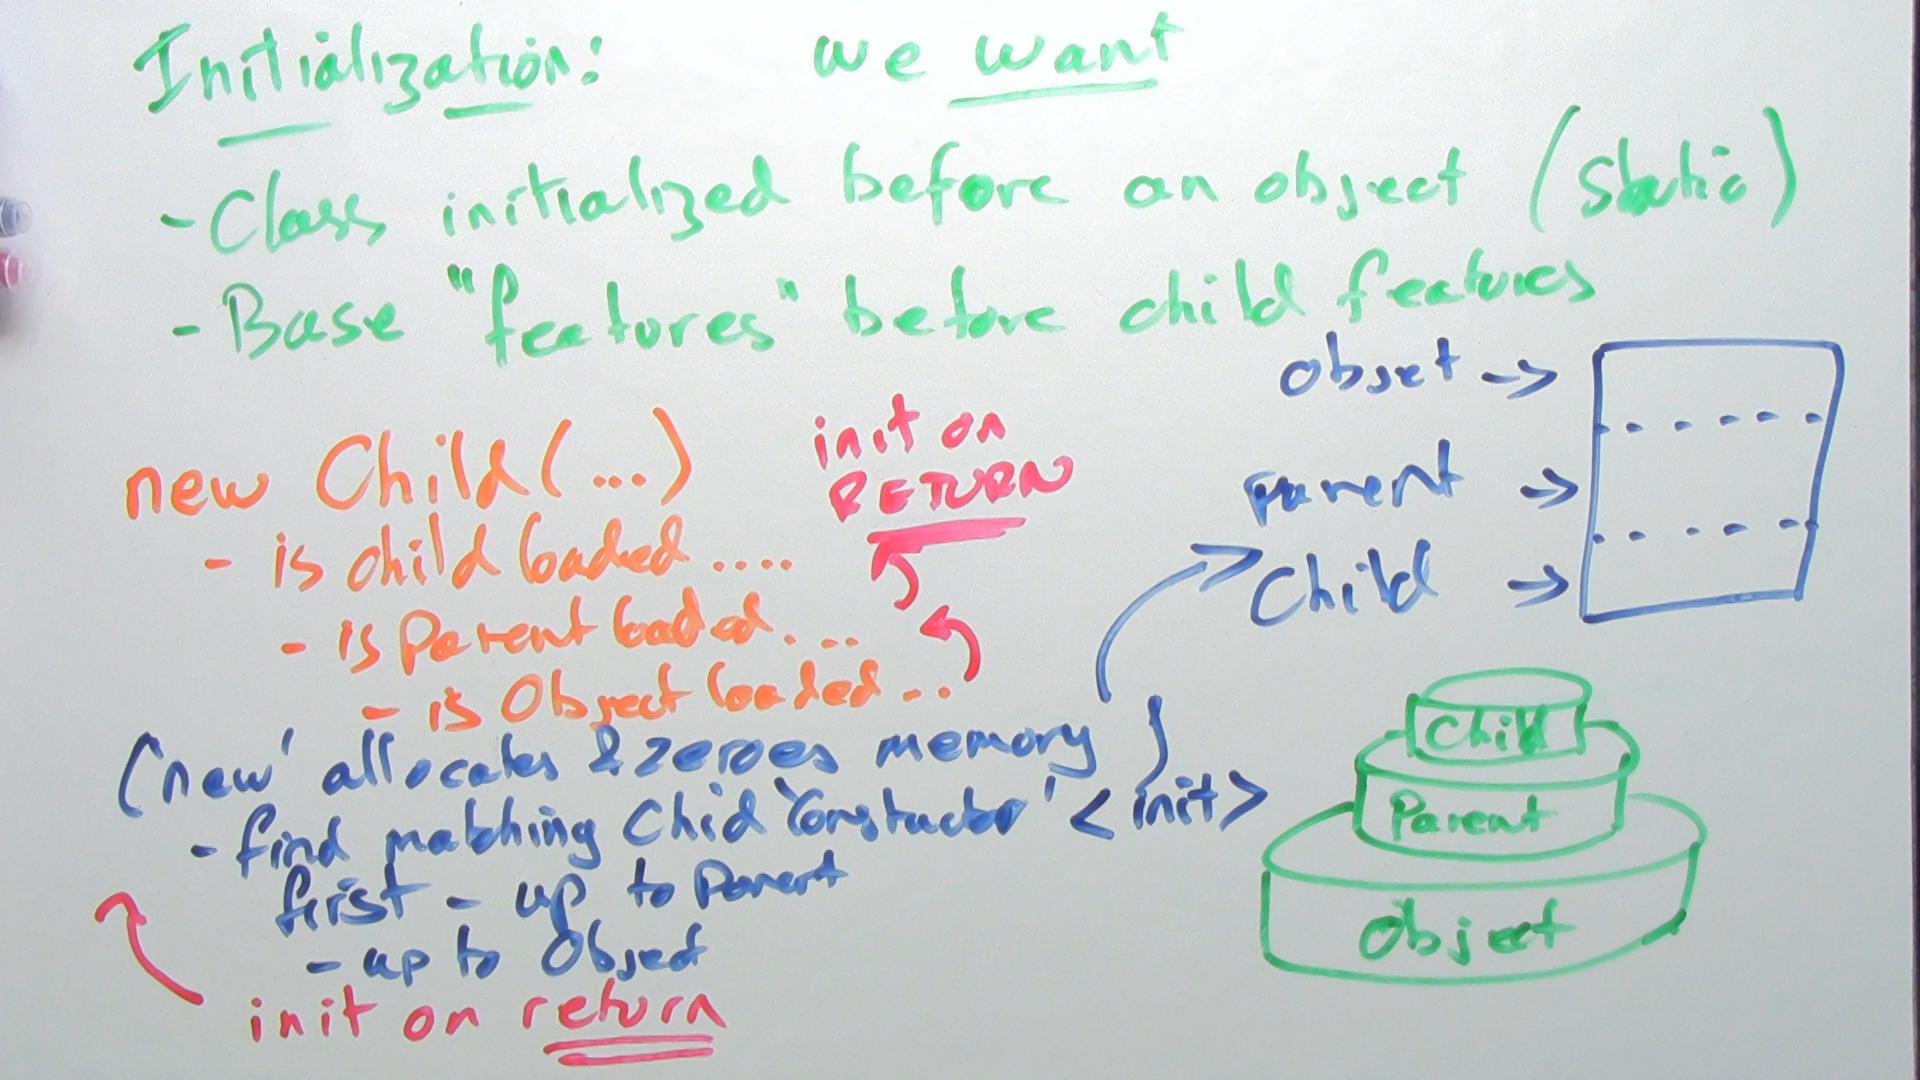 Initialization: we want
- Class initialized before an object (static)
- Base "features" before child features
new Child(...)
- is child loaded ....
- is Parent loaded....
- is Object loaded...
init on
RETURN
('new' allocates & zeroes memory
- find matching Chid 'constuctor' <init>
first - up to Parent
- up to Object
init on return
Object ->
parent ->
Child ->
Child
Parent
Object